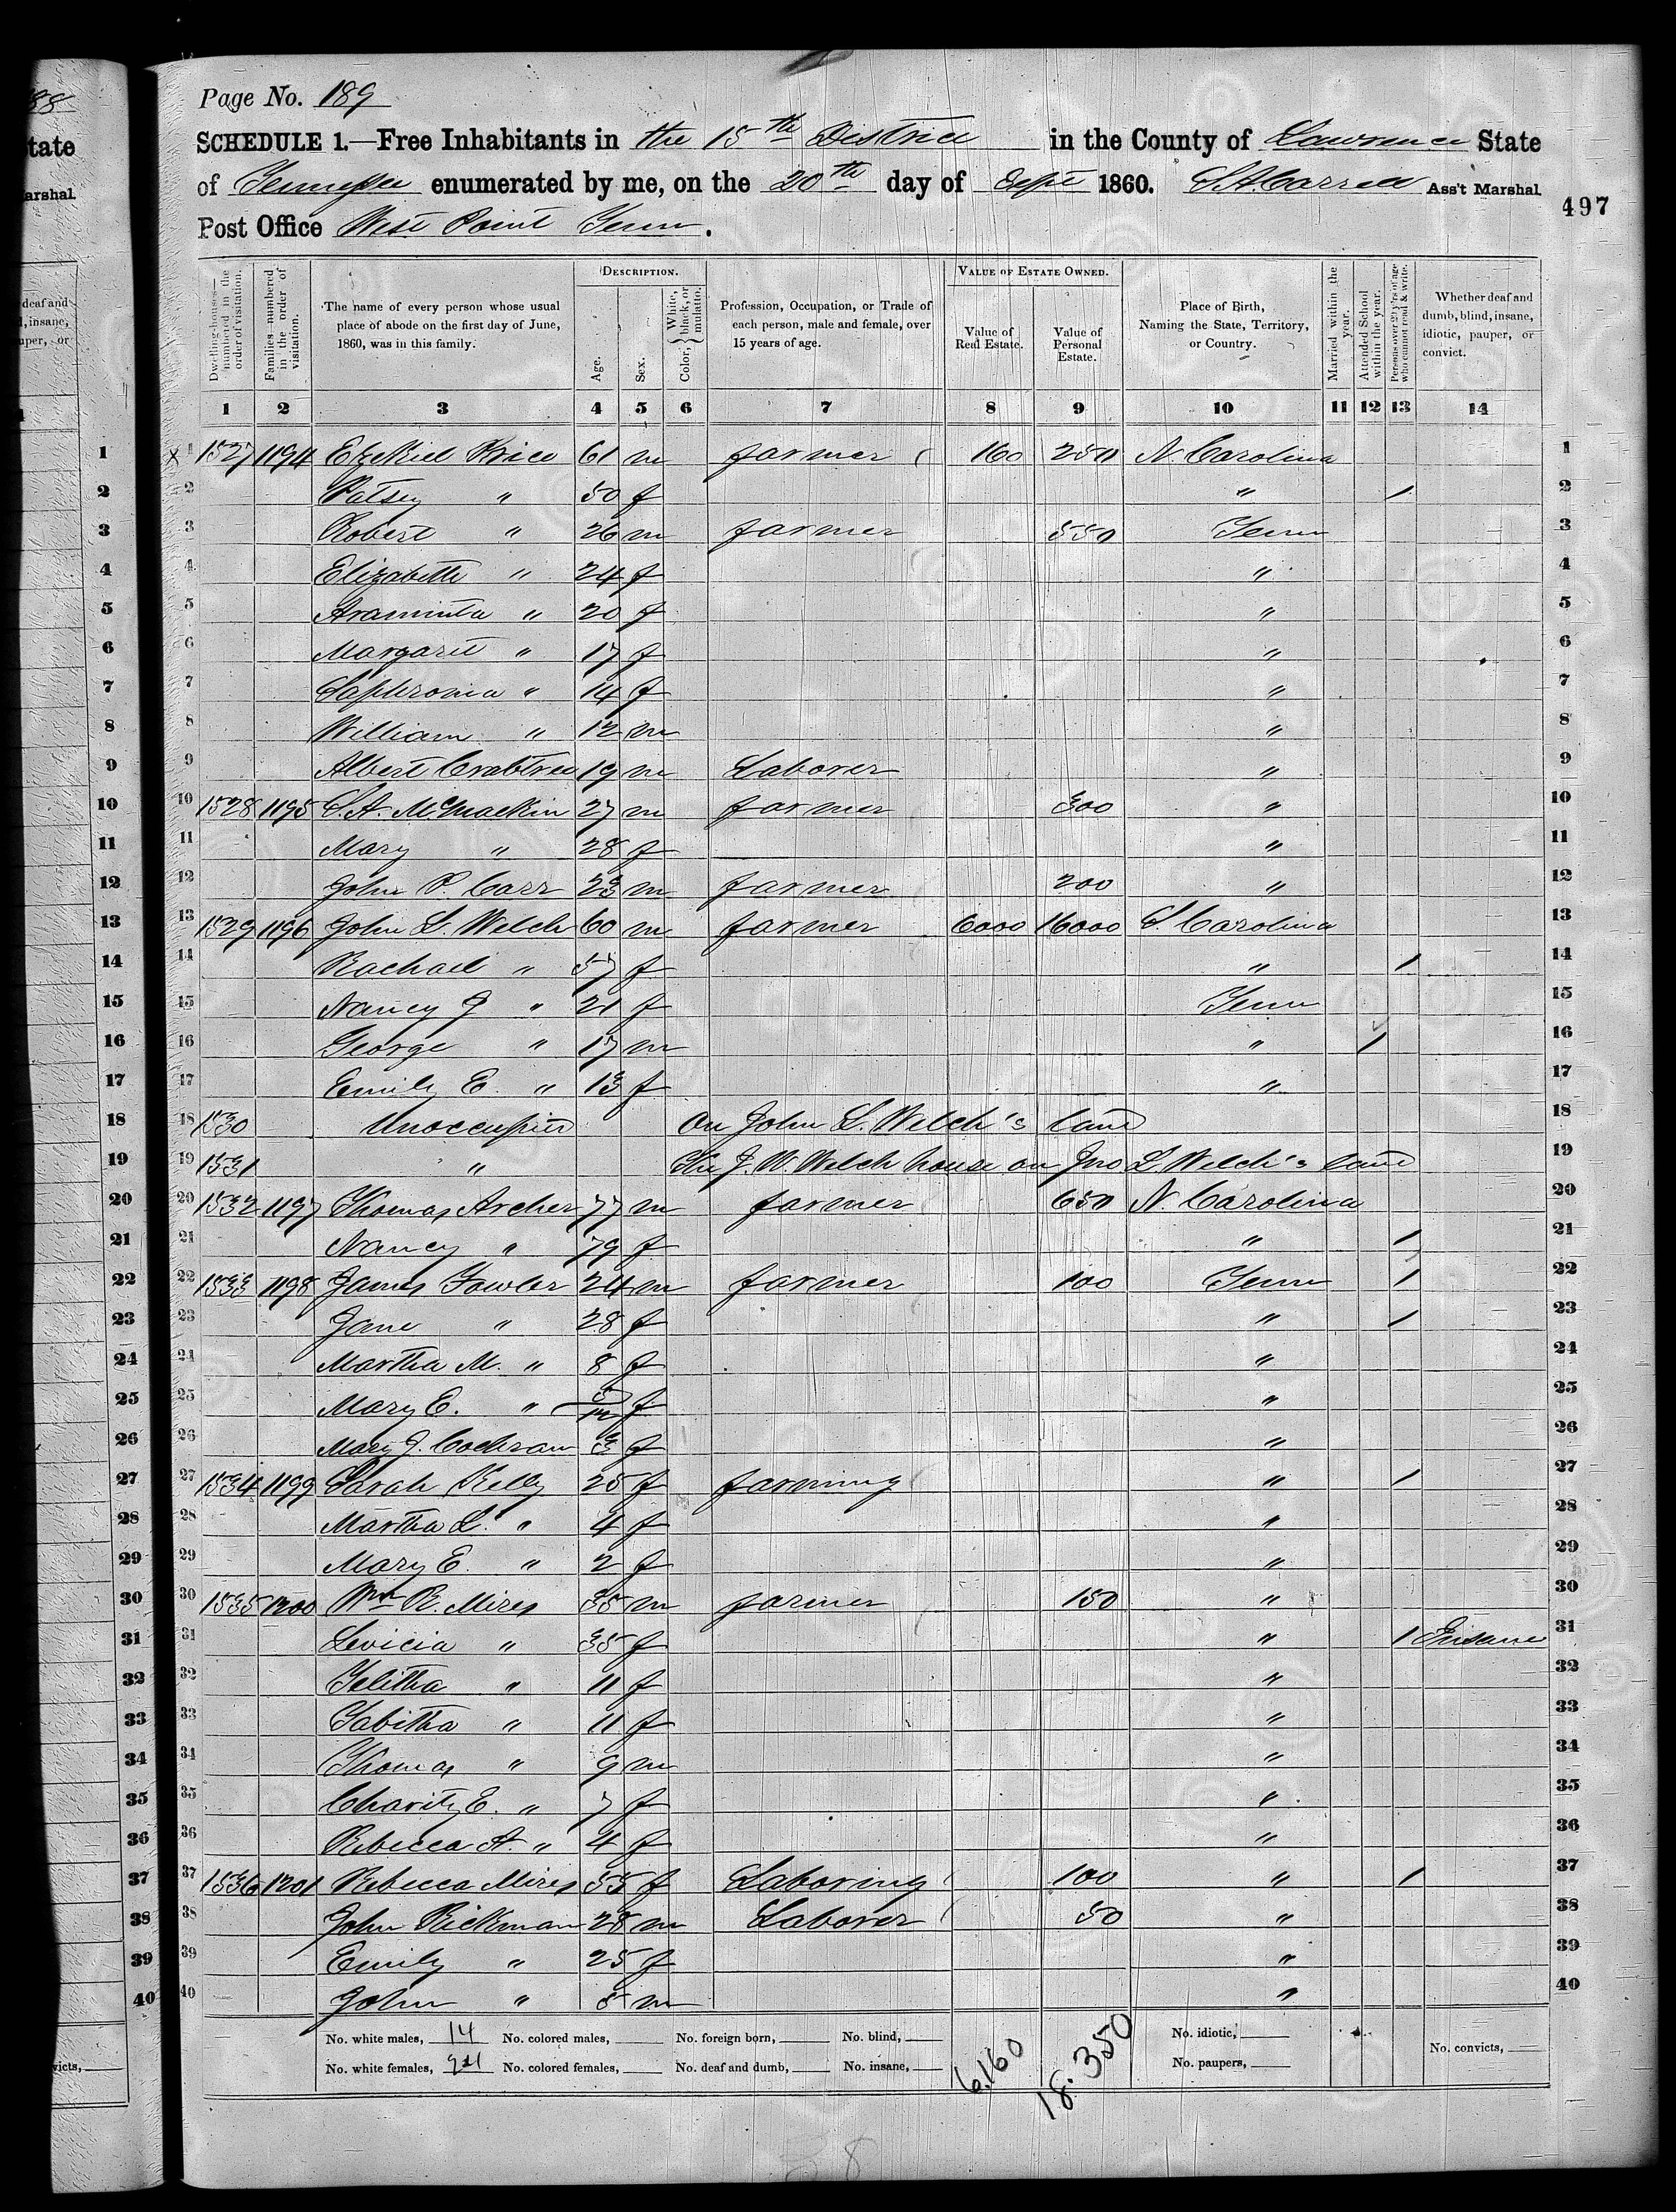 Page No. 189
SCHEDULE 1.—Free Inhabitants in the 15th District in the County of Lawrence State
of Tennessee enumerated by me, on the 20th day of Sept 1860. Ass't Marshal
497
Post Office West Point Tenn.
Dwelling-houses—numbered in the order of visitation.
Families numbered in the order of visitation.
The name of every person whose usual place of abode on the first day of June, 1860, was in this family.
DESCRIPTION.
Age.
Sex.
Color, { White, black, or mulatto.
Profession, Occupation, or Trade of each person, male and female, over 15 years of age.
VALUE OF ESTATE OWNED.
Value of Real Estate.
Value of Personal Estate.
Place of Birth, Naming the State, Territory, or Country.
Married within the year.
Attended School within the year.
Persons over 20 y'rs of age who cannot read & write.
Whether deaf and dumb, blind, insane, idiotic, pauper, or convict.
1 2 3 4 5 6 7 8 9 10 11 12 13 14
1 1527 1194 Ezekiel Price 61 m farmer 160 250 N. Carolina 1
2 Patsey " 50 f " / 2
3 Robert " 26 m farmer 550 Tenn 3
4 Elizabeth " 24 f " 4
5 Araminta " 20 f " 5
6 Margaret " 17 f " 6
7 Saphronia " 14 f " 7
8 William " 12 m " 8
9 Albert Crabtree 19 m Laborer " 9
10 1528 1195 S. A. McMackin 27 m farmer 300 " 10
11 Mary " 28 f " 11
12 John P. Carr 23 m farmer 200 " 12
13 1529 1196 John L. Welch 60 m farmer 6000 16000 S. Carolina 13
14 Rachael " 57 f " / 14
15 Nancy J " 21 f Tenn 15
16 George " 17 m " / 16
17 Emily E. " 13 f " 17
18 1530 Unoccupied on John L. Welch's land 18
19 1531 " The J. W. Welch house on Jno L Welch's land 19
20 1532 1197 Thomas Archer 77 m farmer 650 N. Carolina 20
21 Nancy " 79 f " / 21
22 1533 1198 James Fowler 24 m farmer 100 Tenn / 22
23 Jane " 28 f " / 23
24 Martha M. " 8 f " 24
25 Mary E. " 5/12 f " 25
26 Mary J. Cochran 3 f " 26
27 1534 1199 Sarah Kelly 25 f farming " / 27
28 Martha L. " 4 f " 28
29 Mary E. " 2 f " 29
30 1535 1200 Wm R. Mires 35 m farmer 150 " 30
31 Levicia " 35 f " / Insane 31
32 Telitha " 11 f " 32
33 Tabitha " 11 f " 33
34 Thomas " 9 m " 34
35 Charity E. " 7 f " 35
36 Rebecca A. " 4 f " 36
37 1536 1201 Rebecca Mires 55 f Laboring 100 " / 37
38 John Rickman 28 m Laborer 50 " 38
39 Emily " 25 f " 39
40 John " 5 m " 40
No. white males, 14 No. colored males, No. foreign born, No. blind, No. idiotic,
No. white females, 24 No. colored females, No. deaf and dumb, No. insane, No. paupers, No. convicts,
6.160 18.350
38
88
tate
arshal
deaf and
d, insane,
uper, or
1
2
3
4
5
6
7
8
9
10
11
12
13
14
15
16
17
18
19
20
21
22
23
24
25
26
27
28
29
30
31
32
33
34
35
36
37
38
39
40
victs,